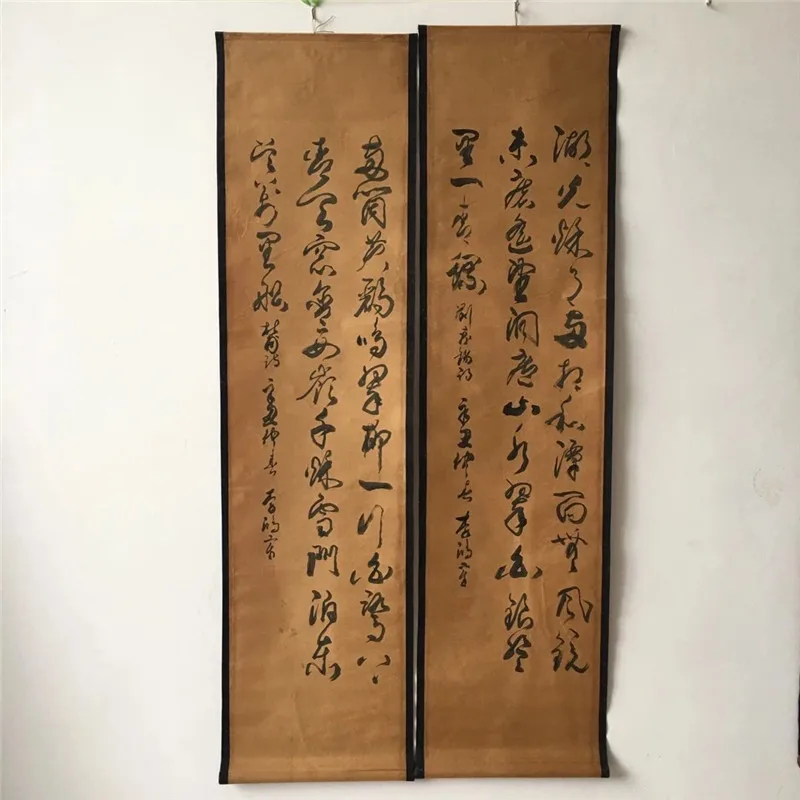 湖光秋月兩相和潭面無風鏡
未磨遙望洞庭山水翠白銀盤
里一青螺 劉禹錫詩 辛丑仲春
兩箇黃鸝鳴翠柳一行白鷺上
青天窗含西嶺千秋雪門泊東
吳萬里船 杜甫詩 辛丑仲春